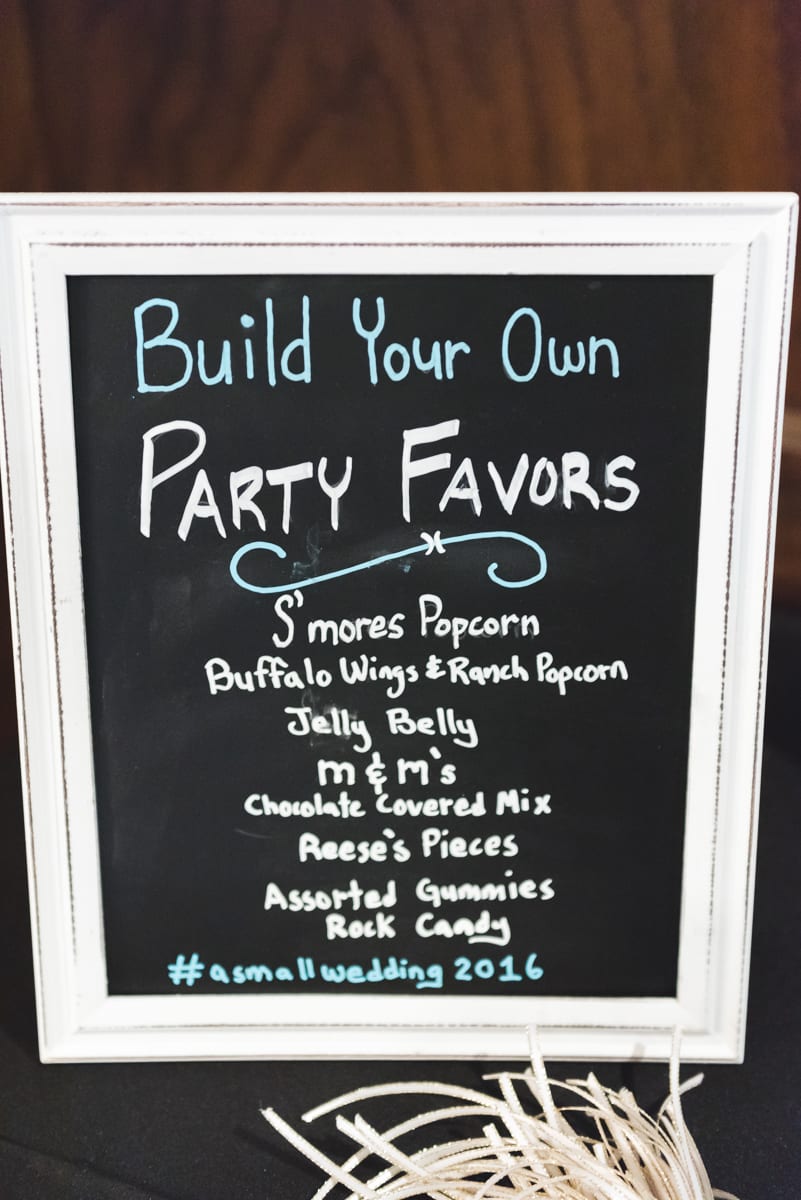 Build Your Own
PARTY FAVORS
S'mores Popcorn
Buffalo Wings & Ranch Popcorn
Jelly Belly
m & m's
Chocolate Covered Mix
Reese's Pieces
Assorted Gummies
Rock Candy
#asmallwedding 2016